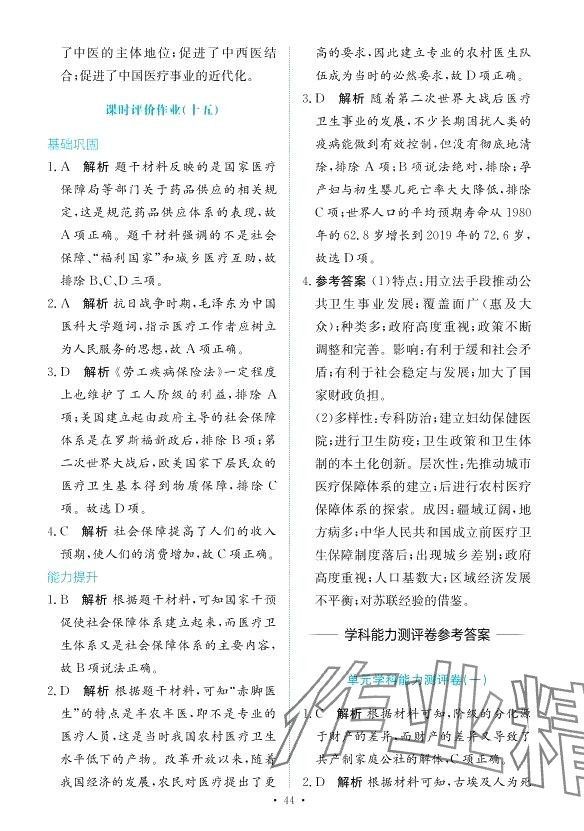 了中医的主体地位;促进了中西医结
合;促进了中国医疗事业的近代化。
课时评价作业(十五)
基础巩固
1. A 解析 题干材料反映的是国家医疗
保障局等部门关于药品供应的相关规
定,这是规范药品供应体系的表现,故
A项正确。题干材料强调的不是社会
保障、“福利国家”和城乡医疗互助,故
排除B、C、D三项。
2. A 解析 抗日战争时期,毛泽东为中国
医科大学题词,指示医疗工作者应树立
为人民服务的思想,故A项正确。
3. D 解析 《劳工疾病保险法》一定程度
上也维护了工人阶级的利益,排除A
项;美国建立起由政府主导的社会保障
体系是在罗斯福新政后,排除B项;第
二次世界大战后,欧美国家下层民众的
医疗卫生基本得到物质保障,排除C
项。故选D项。
4. C 解析 社会保障提高了人们的收入
预期,使人们的消费增加,故C项正确。
能力提升
1. B 解析 根据题干材料,可知国家干预
促使社会保障体系建立起来,而医疗卫
生体系又是社会保障体系的主要内容,
故B项正确。
2. D 解析 根据题干材料,可知“赤脚医
生”的特点是半农半医,即不是专业的
医疗人员,这是当时我国农村医疗卫生
水平低下的产物。改革开放以来,随着
我国经济的发展,农民对医疗提出了更
高的要求,因此建立专业的农村医生队
伍成为当时的必然要求,故D项正确。
3. D 解析 随着第二次世界大战后医疗
卫生事业的发展,不少长期困扰人类的
疫病能做到有效控制,但没有彻底地清
除,排除A项;B项说法绝对,排除;孕
产妇与初生婴儿死亡率大大降低,排除
C项;世界人口的平均预期寿命从1980
年的62.8岁增长到2019年的72.6岁,
故选D项。
4. 参考答案 (1)特点:用立法手段推动公
共卫生事业发展;覆盖面广(惠及大
众);种类多;政府高度重视;政策不断
调整和完善。影响:有利于缓和社会矛
盾;有利于社会稳定与发展;加大了国
家财政负担。
(2)多样性:专科防治;建立妇幼保健医
院;进行卫生防疫;卫生政策和卫生体
制的本土化创新。层次性:先推动城市
医疗保障体系的建立;后进行农村医疗
保障体系的探索。成因:疆域辽阔,地
方病多;中华人民共和国成立前医疗卫
生保障制度落后;出现城乡差别;政府
高度重视;人口基数大;区域经济发展
不平衡;对苏联经验的借鉴。
学科能力测评卷参考答案
单元学科能力测评卷(一)
1. C 解析 根据材料可知,阶级的分化源
于财产的差异,而财产的差异又导致了
共产制家庭公社的解体,C项正确。
2. D 解析 根据材料可知,古埃及人为死
作业精
· 44 ·